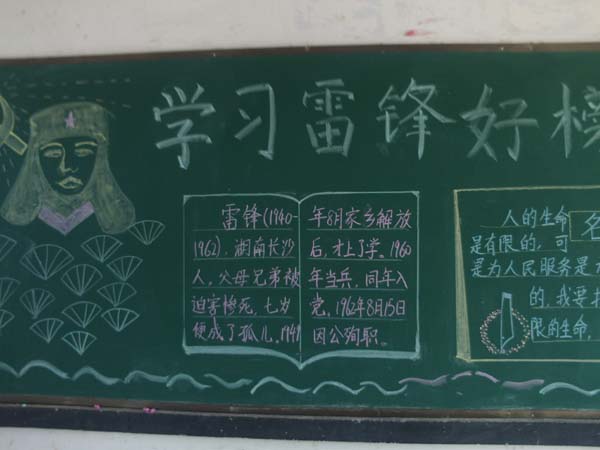 学习雷锋好榜
雷锋(1940-
1962),湖南长沙
人,父母兄弟被
迫害惨死,七岁
便成了孤儿。1949
年8月家乡解放
后,才上了学。1960
年当兵,同年入
党。1962年8月15日
因公殉职。
名
人的生命
是有限的,可
是为人民服务是
的,我要把
限的生命,